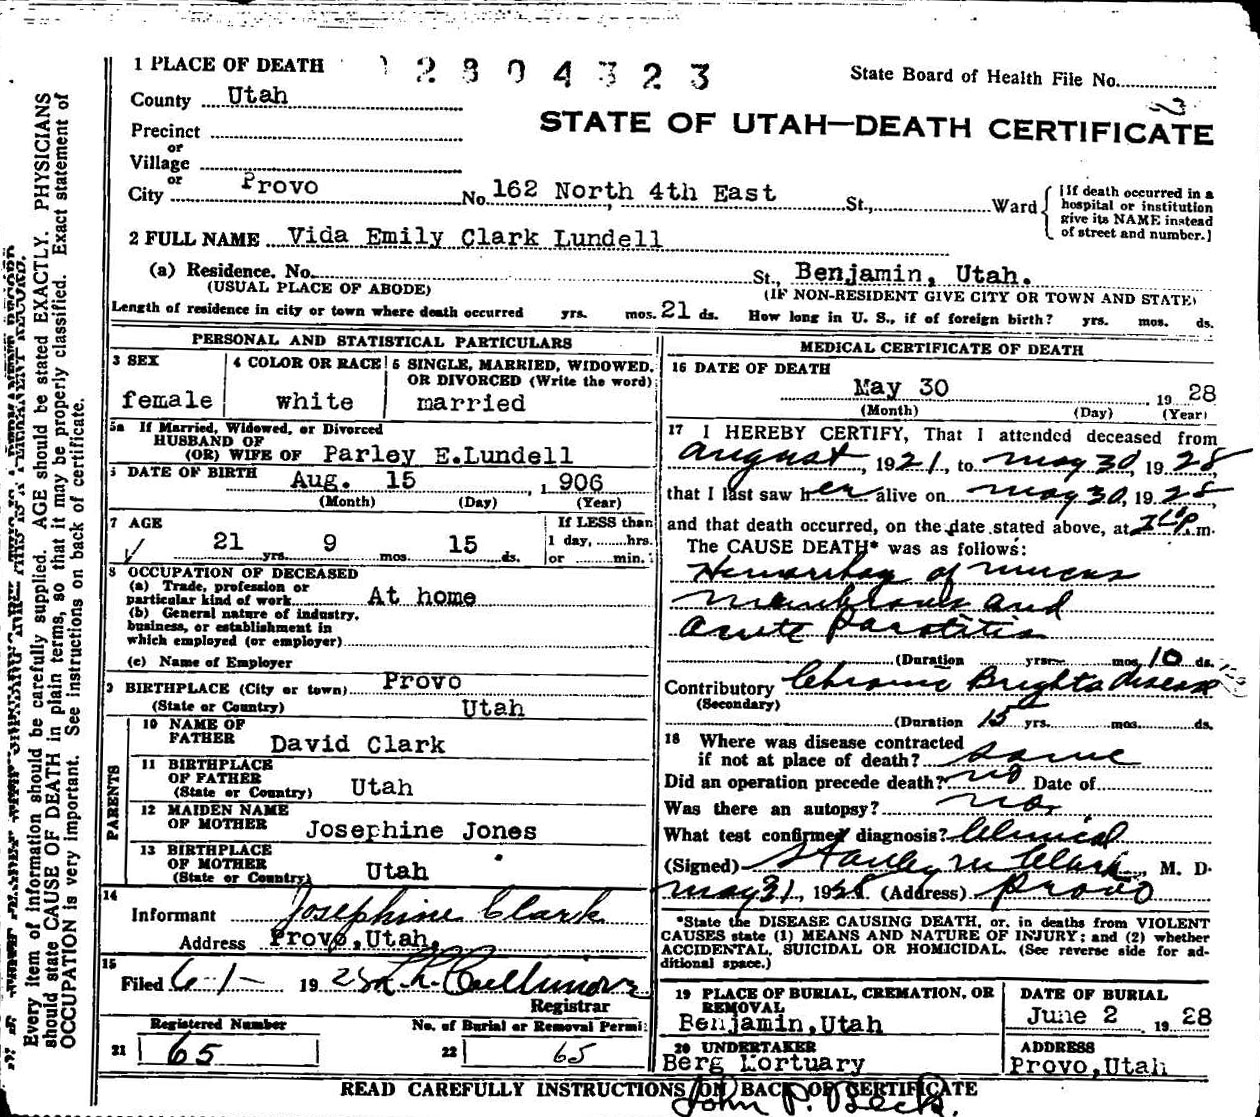 1 PLACE OF DEATH
2 3 0 4 3 2 3
State Board of Health File No.
County Utah
STATE OF UTAH—DEATH CERTIFICATE
Precinct
or
Village
or
City Provo No. 162 North 4th East St., Ward
[If death occurred in a
hospital or institution
give its NAME instead
of street and number.]
2 FULL NAME Vida Emily Clark Lundell
(a) Residence. No. St., Benjamin, Utah.
(USUAL PLACE OF ABODE) (IF NON-RESIDENT GIVE CITY OR TOWN AND STATE)
Length of residence in city or town where death occurred yrs. mos. 21 ds. How long in U. S., if of foreign birth? yrs. mos. ds.
PERSONAL AND STATISTICAL PARTICULARS
3 SEX
female
4 COLOR OR RACE
white
5 SINGLE, MARRIED, WIDOWED,
OR DIVORCED (Write the word)
married
5a If Married, Widowed, or Divorced
HUSBAND OF
(OR) WIFE OF Parley E.Lundell
DATE OF BIRTH Aug. 15 , 1906
(Month) (Day) (Year)
7 AGE
21 yrs. 9 mos. 15 ds.
If LESS than
1 day, ......hrs.
or ......min.
8 OCCUPATION OF DECEASED
(a) Trade, profession or
particular kind of work At home
(b) General nature of industry,
business, or establishment in
which employed (or employer)
(c) Name of Employer
9 BIRTHPLACE (City or town) Provo
(State or Country) Utah
PARENTS
10 NAME OF
FATHER David Clark
11 BIRTHPLACE
OF FATHER
(State or Country) Utah
12 MAIDEN NAME
OF MOTHER Josephine Jones
13 BIRTHPLACE
OF MOTHER
(State or Country) Utah
14
Informant Josephine Clark
Address Provo,Utah.
15
Filed 6-1- 1928
Registrar
Registered Number
21 65
No. of Burial or Removal Permit
22 65
MEDICAL CERTIFICATE OF DEATH
16 DATE OF DEATH
May 30 , 1928
(Month) (Day) (Year)
17 I HEREBY CERTIFY, That I attended deceased from
August, 1921, to May 30, 1928,
that I last saw her alive on May 30, 1928
and that death occurred, on the date stated above, at m.
The CAUSE DEATH* was as follows:
Hemorrhag of mucus
membranes and
acute Parotitis
(Duration yrs. mos. 10 ds.
Contributory Chronic Brights disease
(Secondary)
(Duration 15 yrs. mos. ds.
18 Where was disease contracted
if not at place of death? same
Did an operation precede death? no Date of
Was there an autopsy? no.
What test confirmed diagnosis? Clinical
(Signed) Stanley M Clark, M. D.
May 31, 1928 (Address) Provo
*State the DISEASE CAUSING DEATH, or, in deaths from VIOLENT
CAUSES state (1) MEANS AND NATURE OF INJURY; and (2) whether
ACCIDENTAL, SUICIDAL OR HOMICIDAL. (See reverse side for ad-
ditional space.)
19 PLACE OF BURIAL, CREMATION, OR
REMOVAL
Benjamin,Utah
DATE OF BURIAL
June 2 1928
20 UNDERTAKER
Berg Mortuary
ADDRESS
Provo,Utah
READ CAREFULLY INSTRUCTIONS ON BACK OF CERTIFICATE
John P. Beck.
Every item of information should be carefully supplied. AGE should be stated EXACTLY. PHYSICIANS
should state CAUSE OF DEATH in plain terms, so that it may be properly classified. Exact statement of
OCCUPATION is very important. See instructions on back of certificate.